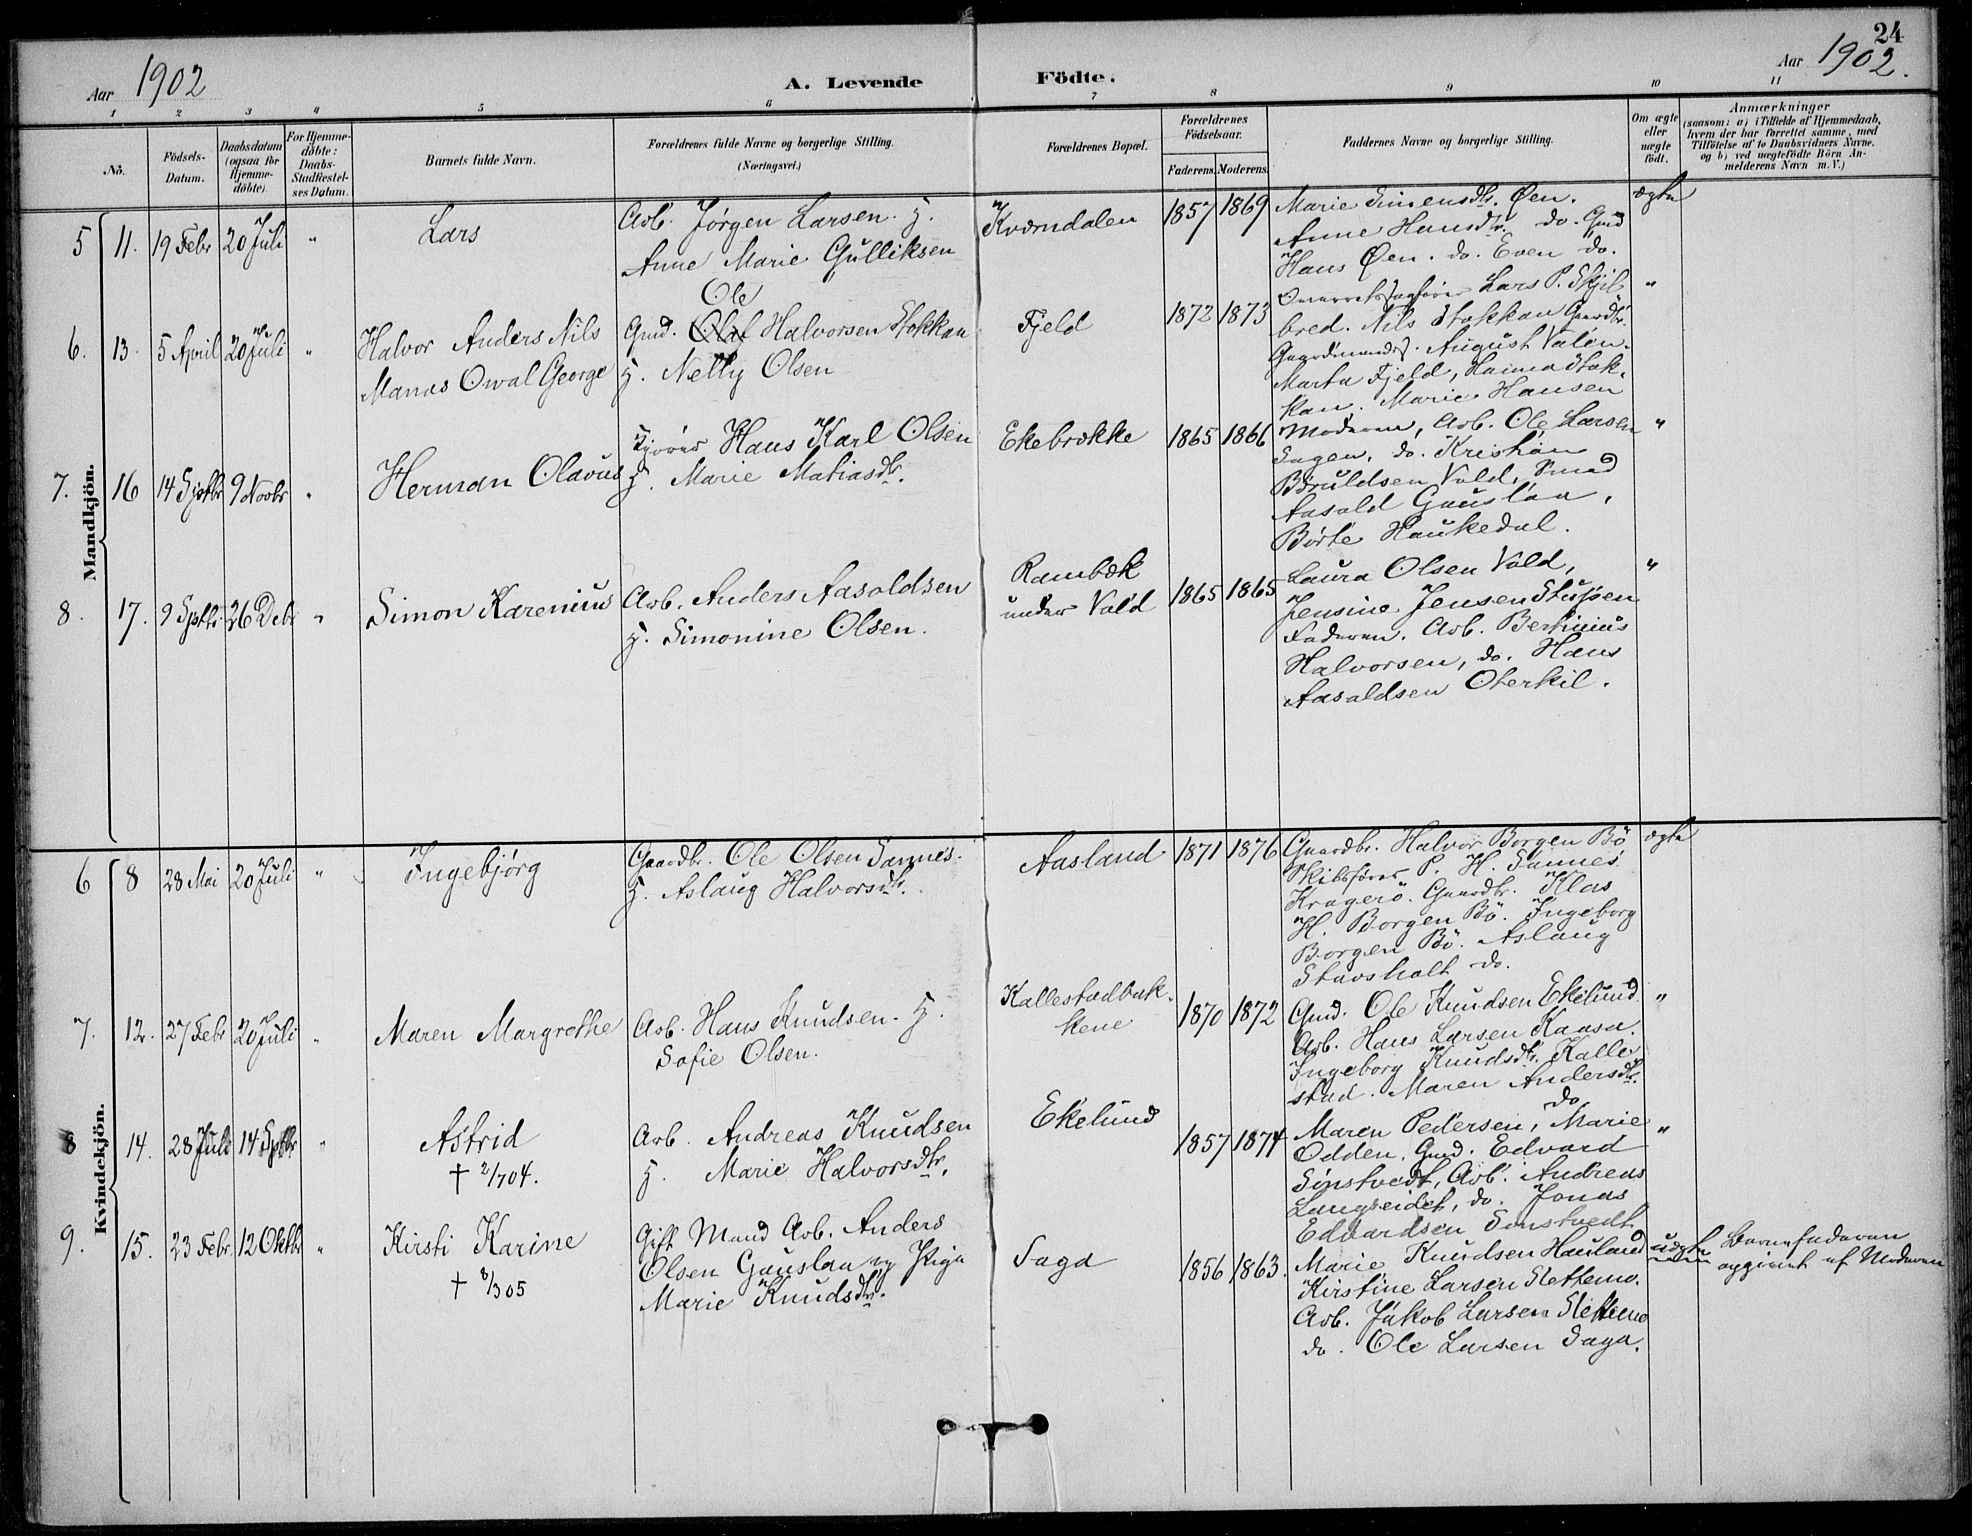 24
Aar 1902
A. Levende
Födte.
Aar 1902.
1 2 3 4 5 6 7 8 9 10 11
No.
Födsels-
Datum.
Daabsdatum
(ogsaa for
Hjemme-
döbte).
For Hjemme-
döbte:
Daabs-
Stadfæstel-
ses Datum.
Barnets fulde Navn.
Forældrenes fulde Navne og borgerlige Stilling.
(Næringsvei.)
Forældrenes Bopæl.
Forældrenes
Födselsaar.
Faderens. Moderens.
Faddernes Navne og borgerlige Stilling.
Om ægte
eller
uægte
födt.
Anmærkninger
(saasom: a) i Tilfælde af Hjemmedaab,
hvem der har forrettet samme, med
Tilföielse af to Daabsvidners Navne,
og b) ved uægtefödte Börn An-
melderens Navn m. V.)
Mandkjön.
5 11. 19 Febr 20 Juli " Lars
Arb. Jørgen Larsen. H.
Anne Marie Gulliksen
Kværndalen 1857 1869
Marie Simensdtr. Øen.
Anne Hansdtr. do. Gmd
Hans Øen. do. Even do.
ægte
6. 13. 5 April 20 Juli "
Halvor Anders Nils
Manas Orval George
Ole
Gmd. Olaf Halvorsen Stokkan
H. Nelly Olsen
Fjeld 1872 1873
Lars P. Skjel
bred. Nils Stokkan Gaardbr.
August Valen.
Marta Fjeld, Stok-
kan. Marie Hansen
"
7. 16 14 Septbr 9 Novbr "
Herman Olavus
Hans Karl Olsen
H. Marie Matiasdtr.
Ekebrække 1865 1866
Moderen, Arb. Ole Larsen
Sagen, do. Kristian
Børuldsen Vold, Smed
Aasold Gauslaa,
Børte Haukedal.
"
8. 17. 9 Septbr 26 Debr "
Simon Karenius
Arb. Anders Aasoldsen
H. Simonine Olsen.
Rambæk
under Vold
1865 1865
Laura Olsen Vold,
Jensine Jensen Stupen
Faderen. Arb. Bertinius
Halvorsen, do. Hans
Aasoldsen Oterkil.
"
Kvindekjön.
6 8 28 Mai 20 Juli "
Ingebjørg
Gaardbr. Ole Olsen Sannes.
H. Aslaug Halvorsdtr.
Aasland 1871 1876
Gaardbr. Halvor Borgen Bö
Skibsfører P. H. Sannes
Kragerö. Gaardbr. Klas
H. Borgen Bö. Ingeborg
Borgen Bö. Aslaug
Stavsholt do.
ægte
7. 12. 27 Febr 20 Juli "
Maren Margrethe
Arb. Hans Knudsen. H.
Sofie Olsen.
Kallestadbak-
kene
1870 1872
Gmd. Ole Knudsen Ekelund.
Arb. Hans Larsen Kaasa.
Ingeborg Knudsdtr. Kalle-
stad. Maren Andersdtr.
do
"
8 14. 28 Juli 14 Septbr "
Astrid
† 2/7 04.
Arb. Andreas Knudsen
H. Marie Halvorsdtr.
Ekelund
1857 1874
Maren Pedersen, Marie
Odden, Gmd. Edvard
Sønstvedt, Arb. Andreas
Langseidet, do. Jonas
Edvardsen Sønstvedt
"
9. 15. 23 Febr. 12 Oktbr "
Kirsti Karine
† 8/3 05
Gift Mand Arb. Anders
Olsen Gauslaa og Pige
Marie Knudsdtr.
Saga 1856 1863.
Marie Knudsen Hauland
Kirstine Larsen Slettemo.
Arb. Jakob Larsen Slettemo
do. Ole Larsen Saga.
uægte
Barnefaderen
opgivet af Moderen